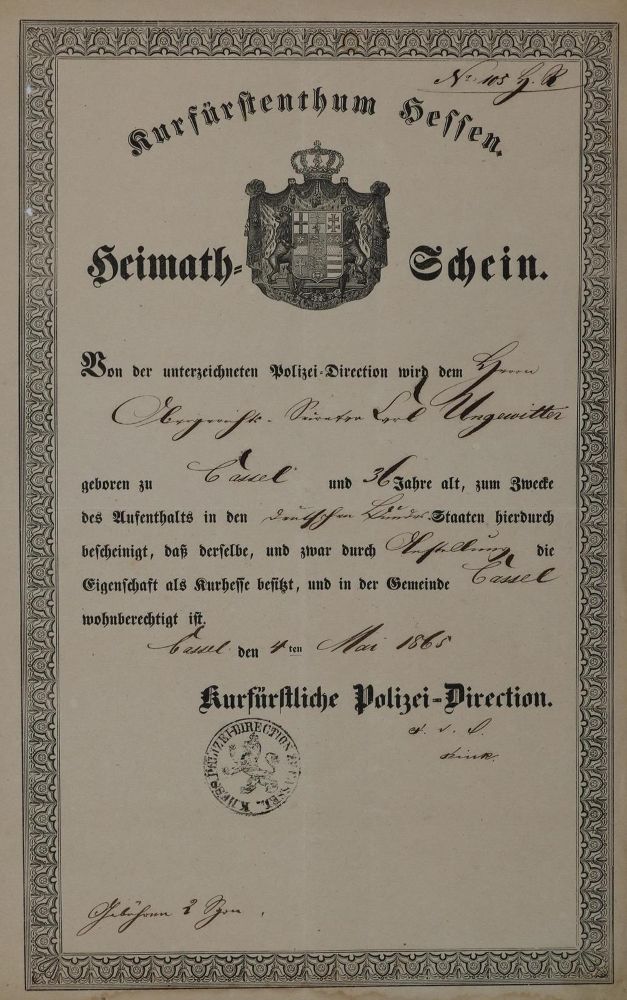 No 105 H. R.
Kurfürstenthum Hessen.
Heimath-Schein.
Von der unterzeichneten Polizei-Direction wird dem Herrn
Obergerichts-Secretar Carl Ungewitter
geboren zu Cassel und 36 Jahre alt, zum Zwecke
des Aufenthalts in den deutschen Bundes-Staaten hierdurch
bescheinigt, daß derselbe, und zwar durch Anstellung die
Eigenschaft als Kurhesse besitzt, und in der Gemeinde Cassel
wohnberechtigt ist.
Cassel den 4ten Mai 1865
Kurfürstliche Polizei-Direction.
POLIZEI-DIRECTION CASSEL
Gebühren 2 Sgr.